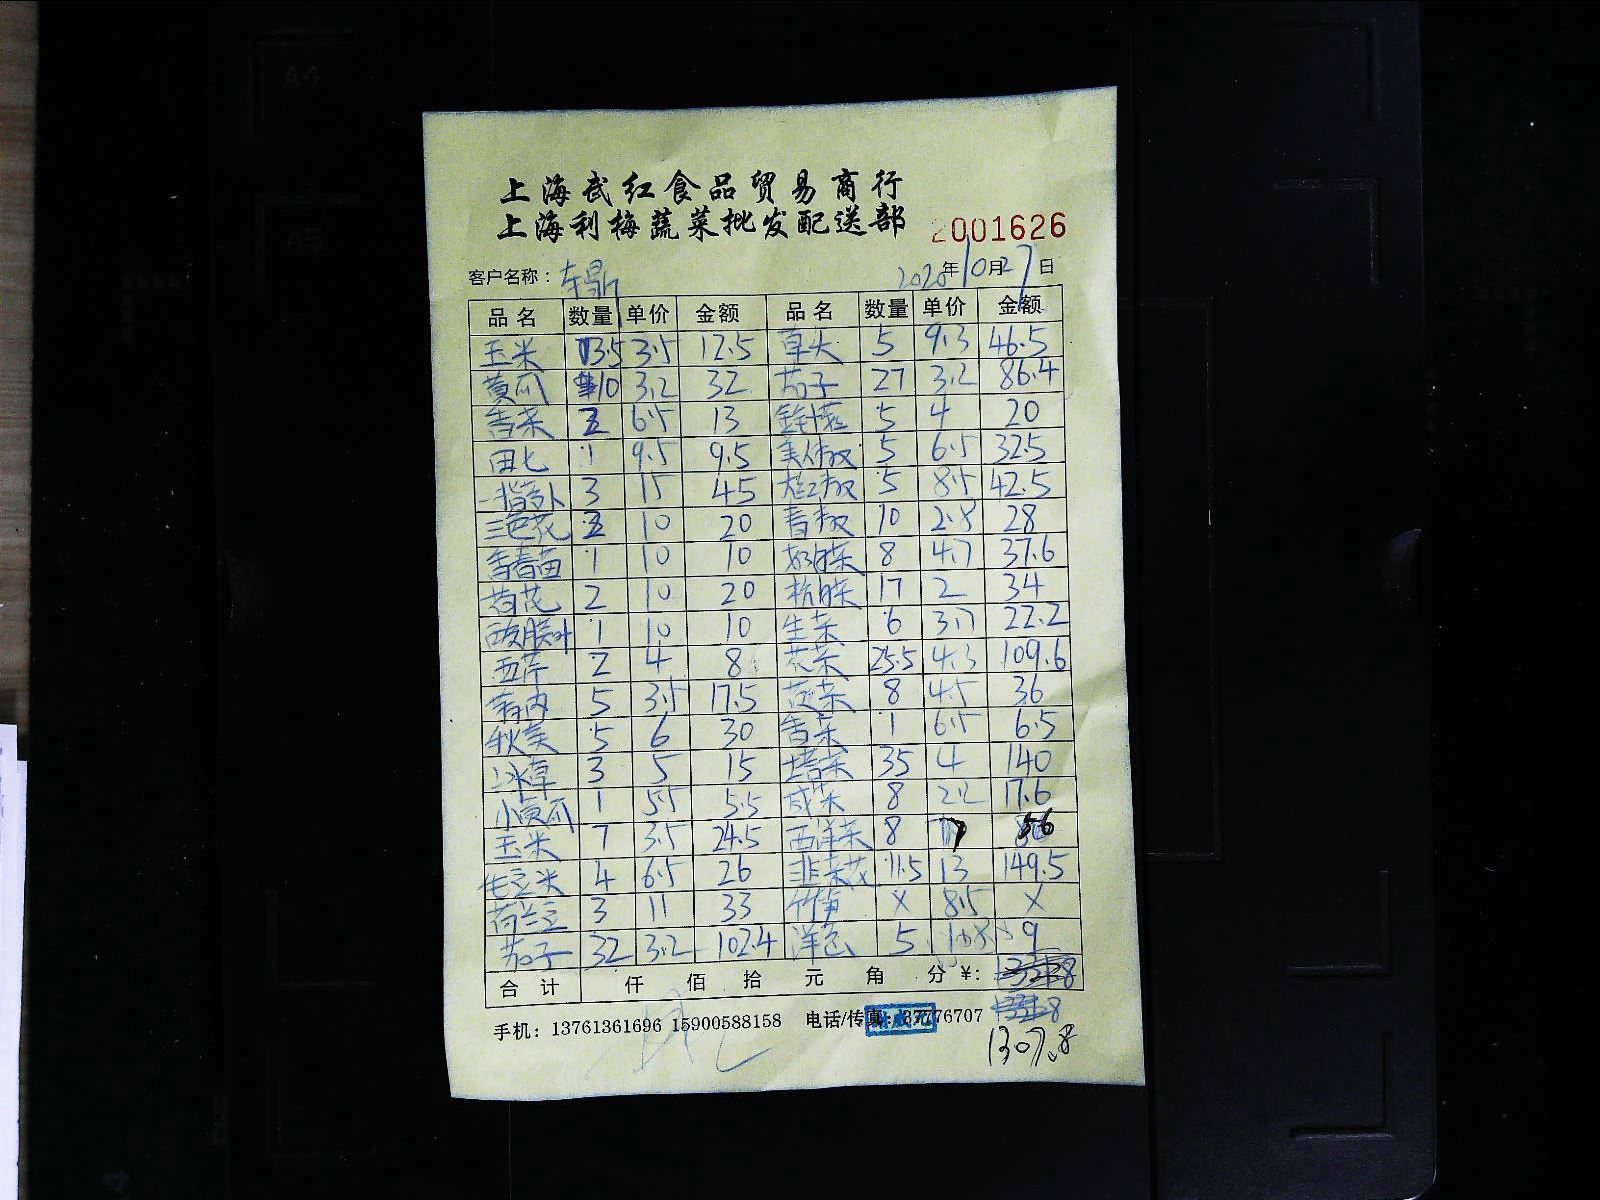 上海武红食品贸易商行
上海利梅蔬菜批发配送部 2001626
客户名称: 2020年10月27日
品名 数量 单价 金额 品名 数量 单价 金额
玉米 3.5 3.5 12.5 草头 5 9.3 46.5
黄瓜 10 3.2 32 茄子 27 3.2 86.4
香菜 2 6.5 13 5 4 20
田七 1 9.5 9.5 美人椒 5 6.5 32.5
一指 3 15 45 椒 5 8.5 42.5
三色花 2 10 20 青椒 10 2.8 28
香春苗 1 10 10 8 4.7 37.6
荷花 2 10 20 17 2 34
1 10 10 生菜 6 3.7 22.2
西芹 2 4 8 花菜 25.5 4.3 109.6
5 3.5 17.5 菠菜 8 4.5 36
秋葵 5 6 30 香菜 1 6.5 6.5
冰草 3 5 15 塔菜 35 4 140
小黄瓜 1 5.5 5.5 咸菜 8 2.2 17.6
玉米 7 3.5 24.5 西洋菜 8 7 56
毛豆米 4 6.5 26 韭菜花 11.5 13 149.5
荷兰豆 3 11 33 竹笋 X 8.5 X
茄子 32 3.2 102.4 洋葱 5 1.8 9
合计 仟 佰 拾 元 角 分 ¥:
手机: 13761361696 15900588158 电话/传真: 37776707
1307.8